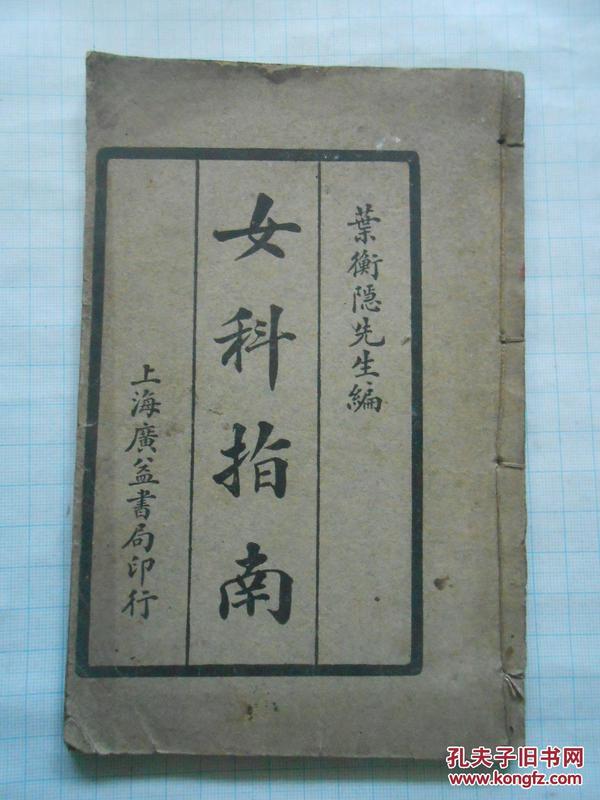 葉衡隱先生編
女科指南
上海廣益書局印行
孔夫子旧书网
www.kongfz.com